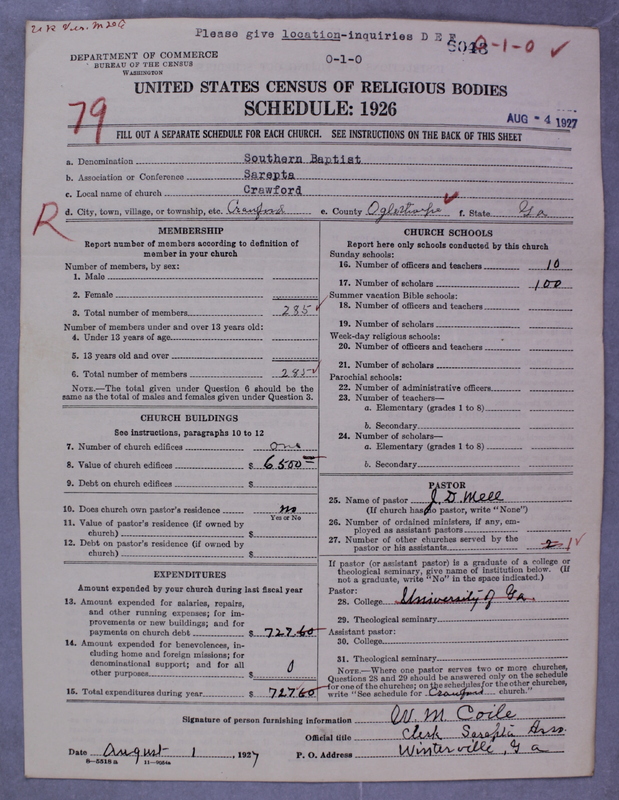 Please give location-inquiries D E F
0-1-0
0-1-0
DEPARTMENT OF COMMERCE
BUREAU OF THE CENSUS
WASHINGTON
UNITED STATES CENSUS OF RELIGIOUS BODIES
SCHEDULE: 1926
79
AUG - 4 1927
FILL OUT A SEPARATE SCHEDULE FOR EACH CHURCH. SEE INSTRUCTIONS ON THE BACK OF THIS SHEET
a. Denomination Southern Baptist
b. Association or Conference Sarepta
c. Local name of church Crawford
d. City, town, village, or township, etc. Crawford e. County Oglethorpe f. State Ga
R
MEMBERSHIP
Report number of members according to definition of
member in your church
Number of members, by sex:
1. Male
2. Female
3. Total number of members 285
Number of members under and over 13 years old:
4. Under 13 years of age
5. 13 years old and over
6. Total number of members 285
NOTE.—The total given under Question 6 should be
same as the total of males and females given under Question 3.
CHURCH BUILDINGS
See instructions, paragraphs 10 to 12
7. Number of church edifices one
8. Value of church edifices $ 6500
9. Debt on church edifices $
10. Does church own pastor's residence no
Yes or No
11. Value of pastor's residence (if owned by
church) $
12. Debt on pastor's residence (if owned by
church) $
EXPENDITURES
Amount expended by your church during last fiscal year
13. Amount expended for salaries, repairs,
and other running expenses; for im-
provements or new buildings; and for
payments on church debt $ 727.60
14. Amount expended for benevolences, in-
cluding home and foreign missions; for
denominational support; and for all
other purposes $ 0
15. Total expenditures during year $ 727.60
CHURCH SCHOOLS
Report here only schools conducted by this church
Sunday schools:
16. Number of officers and teachers 10
17. Number of scholars 100
Summer vacation Bible schools:
18. Number of officers and teachers
19. Number of scholars
Week-day religious schools:
20. Number of officers and teachers
21. Number of scholars
Parochial schools:
22. Number of administrative officers
23. Number of teachers—
a. Elementary (grades 1 to 8)
b. Secondary
24. Number of scholars—
a. Elementary (grades 1 to 8)
b. Secondary
PASTOR
25. Name of pastor J. D. Mell
(If church has no pastor, write "None")
26. Number of ordained ministers, if any, em-
ployed as assistant pastors
27. Number of other churches served by the
pastor or his assistants 2 1
If pastor (or assistant pastor) is a graduate of a college or
theological seminary, give name of institution below. (If
not a graduate, write "No" in the space indicated.)
Pastor:
28. College University of Ga.
29. Theological seminary
Assistant pastor:
30. College
31. Theological seminary
NOTE.—Where one pastor serves two or more churches,
Questions 28 and 29 should be answered only on the schedule
for one of the churches; on the schedules for the other churches,
write "See schedule for Crawford church."
Signature of person furnishing information W. M. Coile
Official title Clerk Sarepta Assn.
Date August 1, 1927 P. O. Address Winterville, Ga
8-5518 a